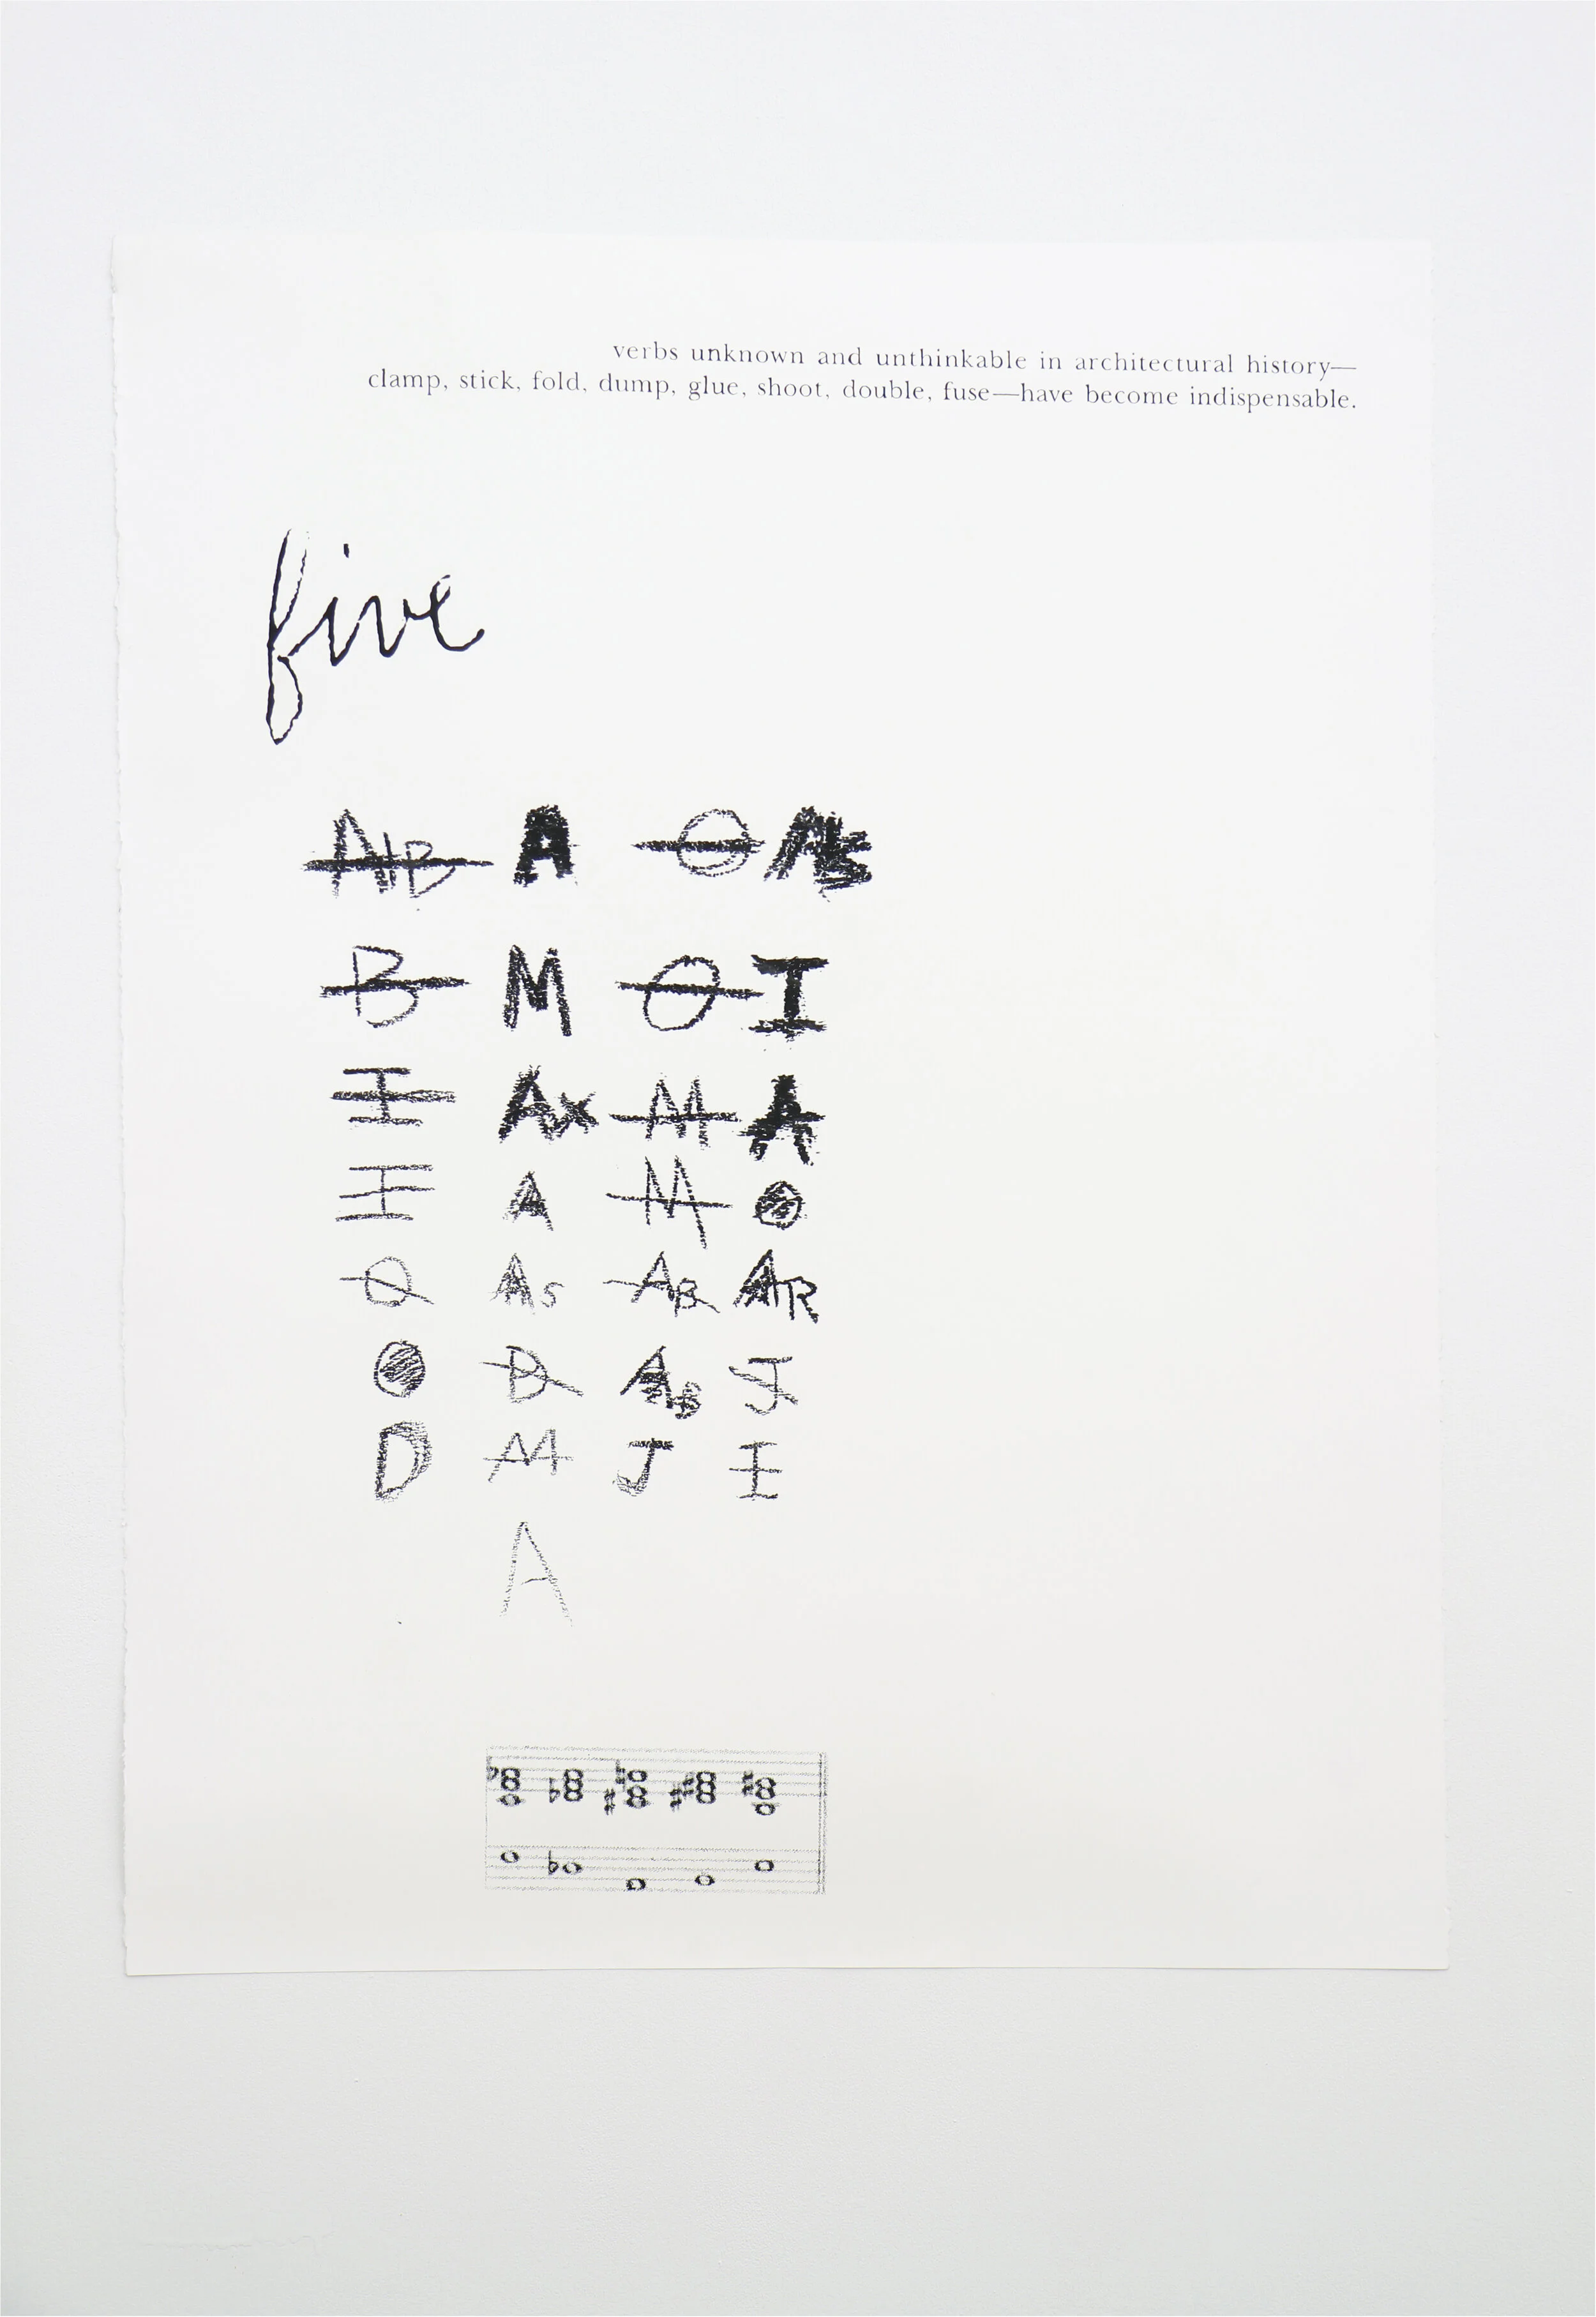 verbs unknown and unthinkable in architectural history—
clamp, stick, fold, dump, glue, shoot, double, fuse—have become indispensable.
five
AB A O As
B M O I
I Ax M A
I A M O
O As AB AR
O D AB J
D M J I
A